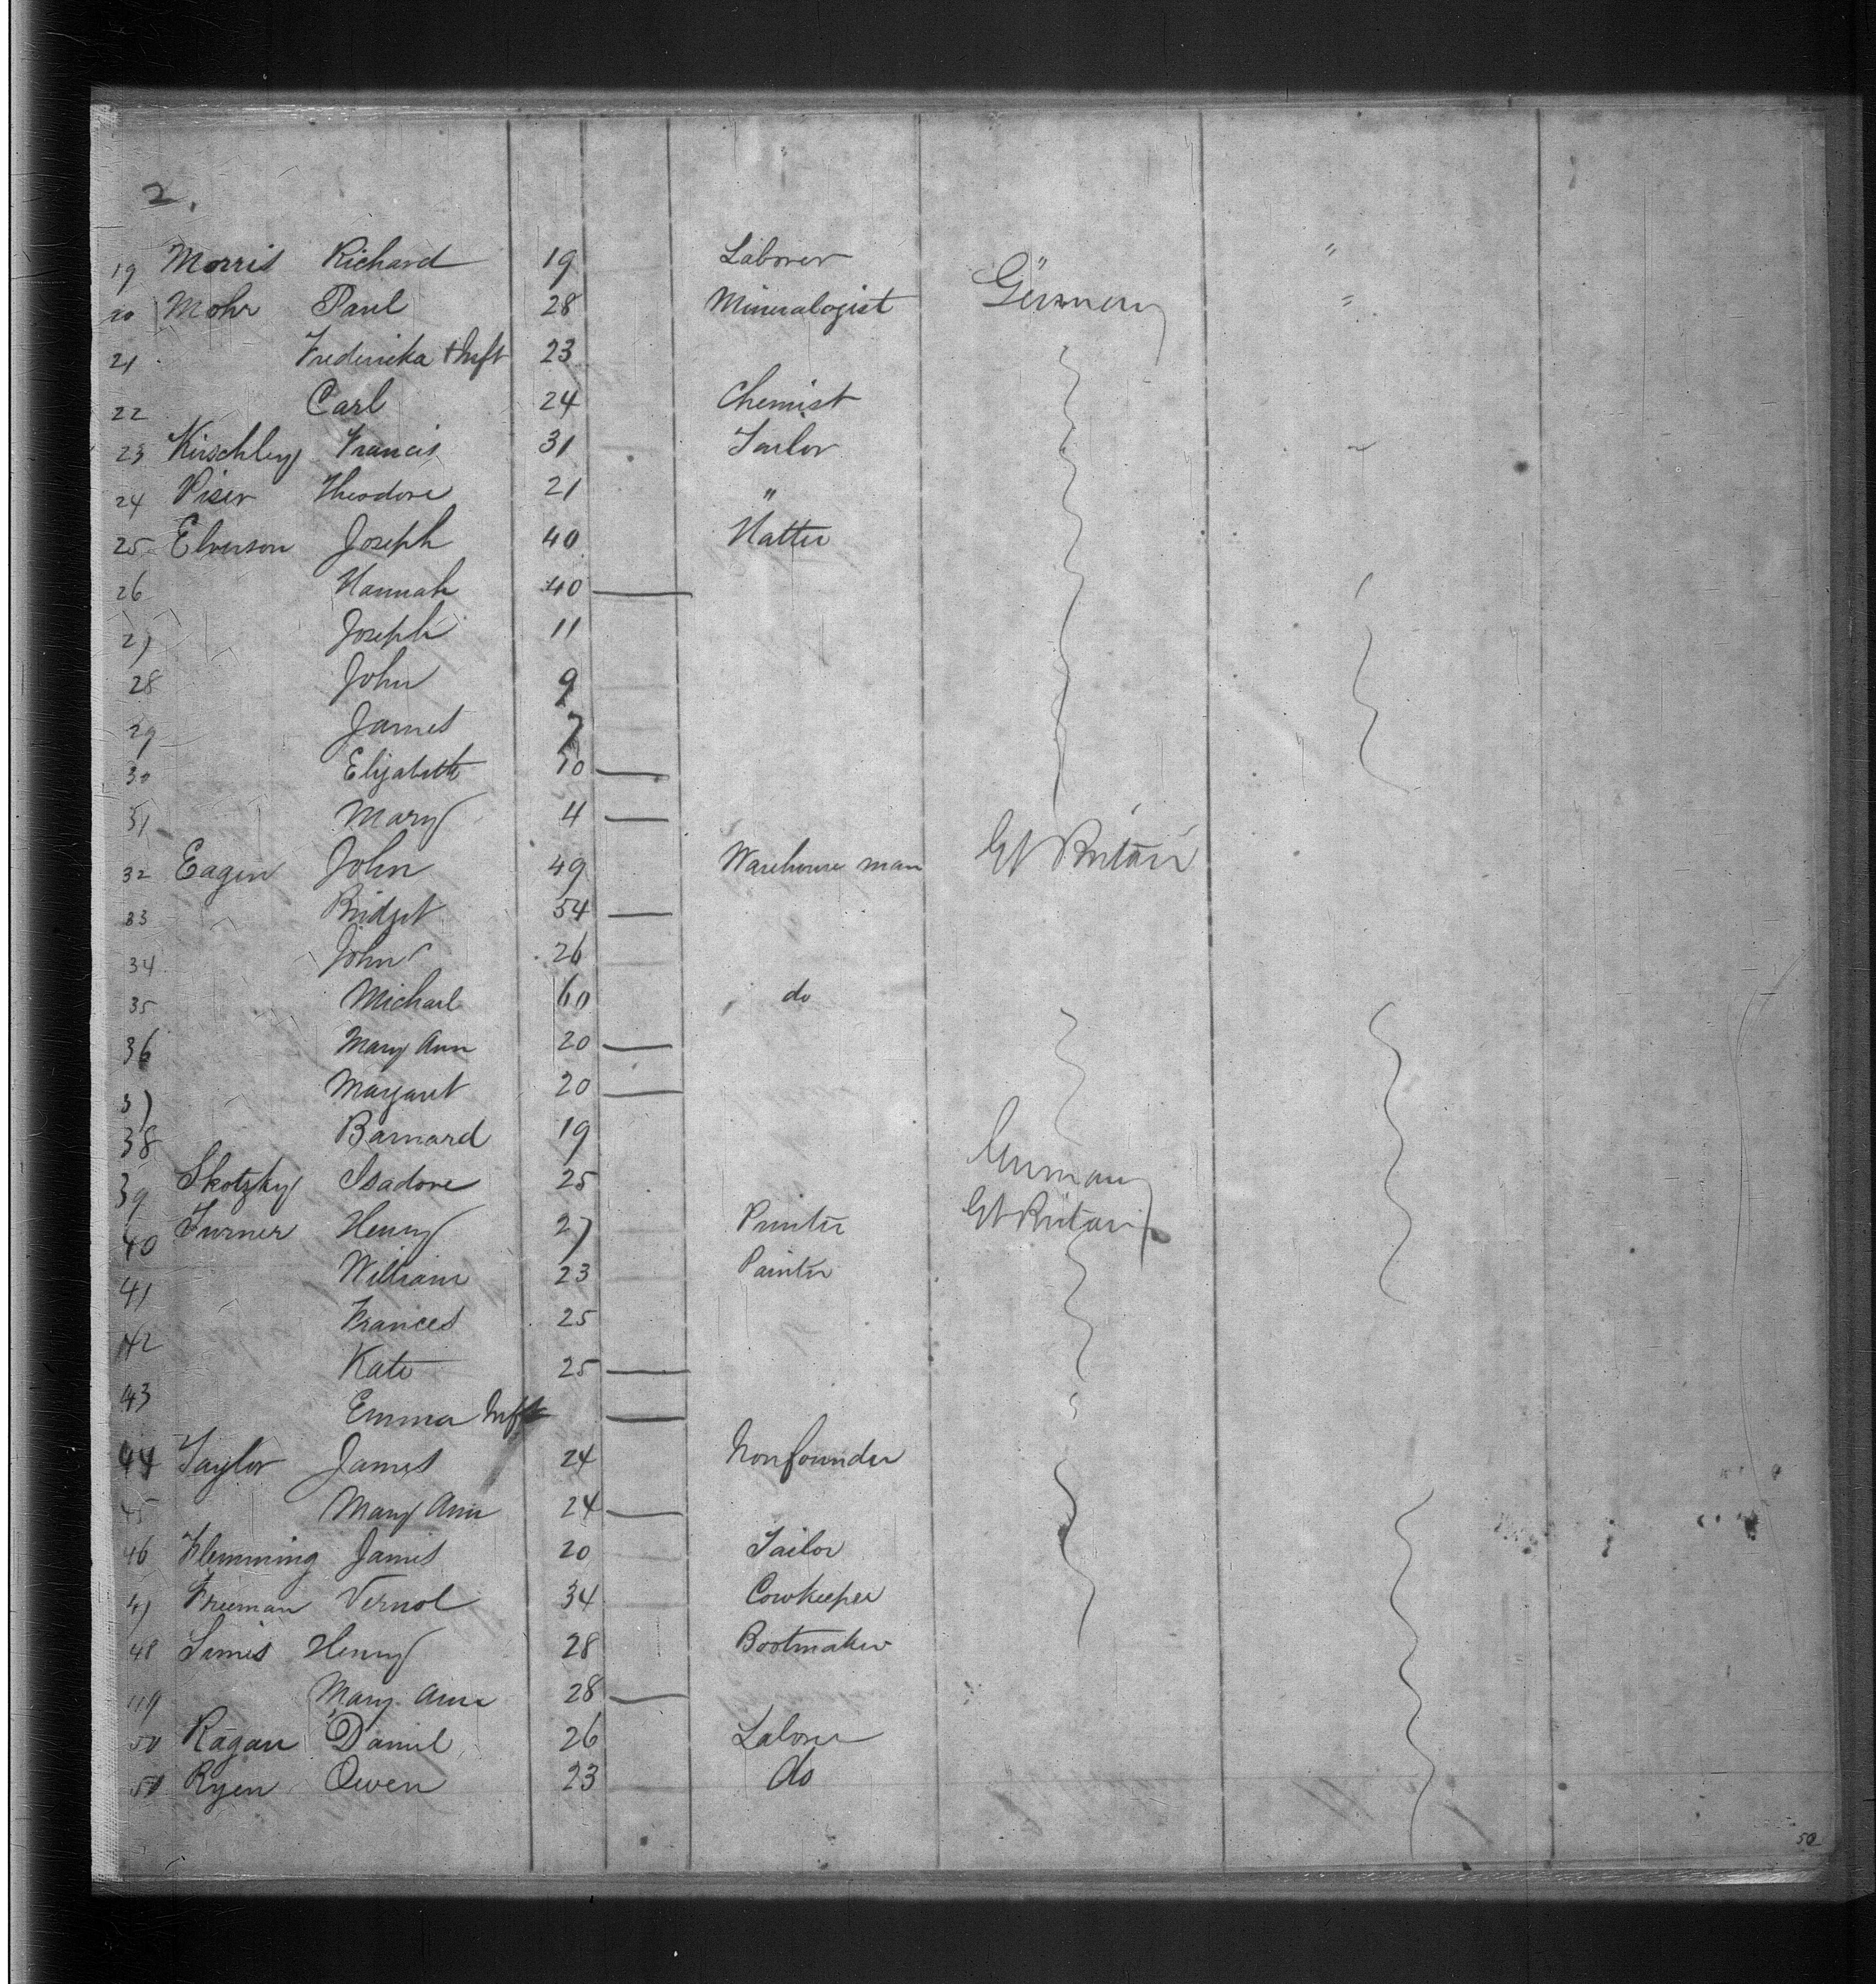 2.
19 Morris Richard 19 Laborer " "
20 Mohr Paul 28 Mineralogist Germany "
21 Frederika & Inft 23
22 Carl 24 Chemist
23 Kirschley Francis 31 Tailor
24 Piser Theodore 21 "
25 Elverson Joseph 40 Hatter
26 Hannah 40
27 Joseph 11
28 John 9
29 James 7
30 Elizabeth 10
31 Mary 4
32 Eagen John 49 Warehouse man Gt Britain
33 Bridget 54
34 John 26
35 Michael 60 do
36 Mary Ann 20
37 Margaret 20
38 Barnard 19
39 Skotzky Isadore 25 Germany
40 Turner Henry 27 Printer Gt Britain
41 William 23 Painter
42 Frances 25
Kate 25
43 Emma Inft
44 Taylor James 24 Ironfounder
45 Mary Ann 24
46 Flemming James 20 Tailor
47 Freeman Vernol 34 Cowkeeper
48 Simis Henry 28 Bootmaker
49 Mary Ann 28
50 Ragan Daniel 26 Laborer
51 Ryen Owen 23 do
50